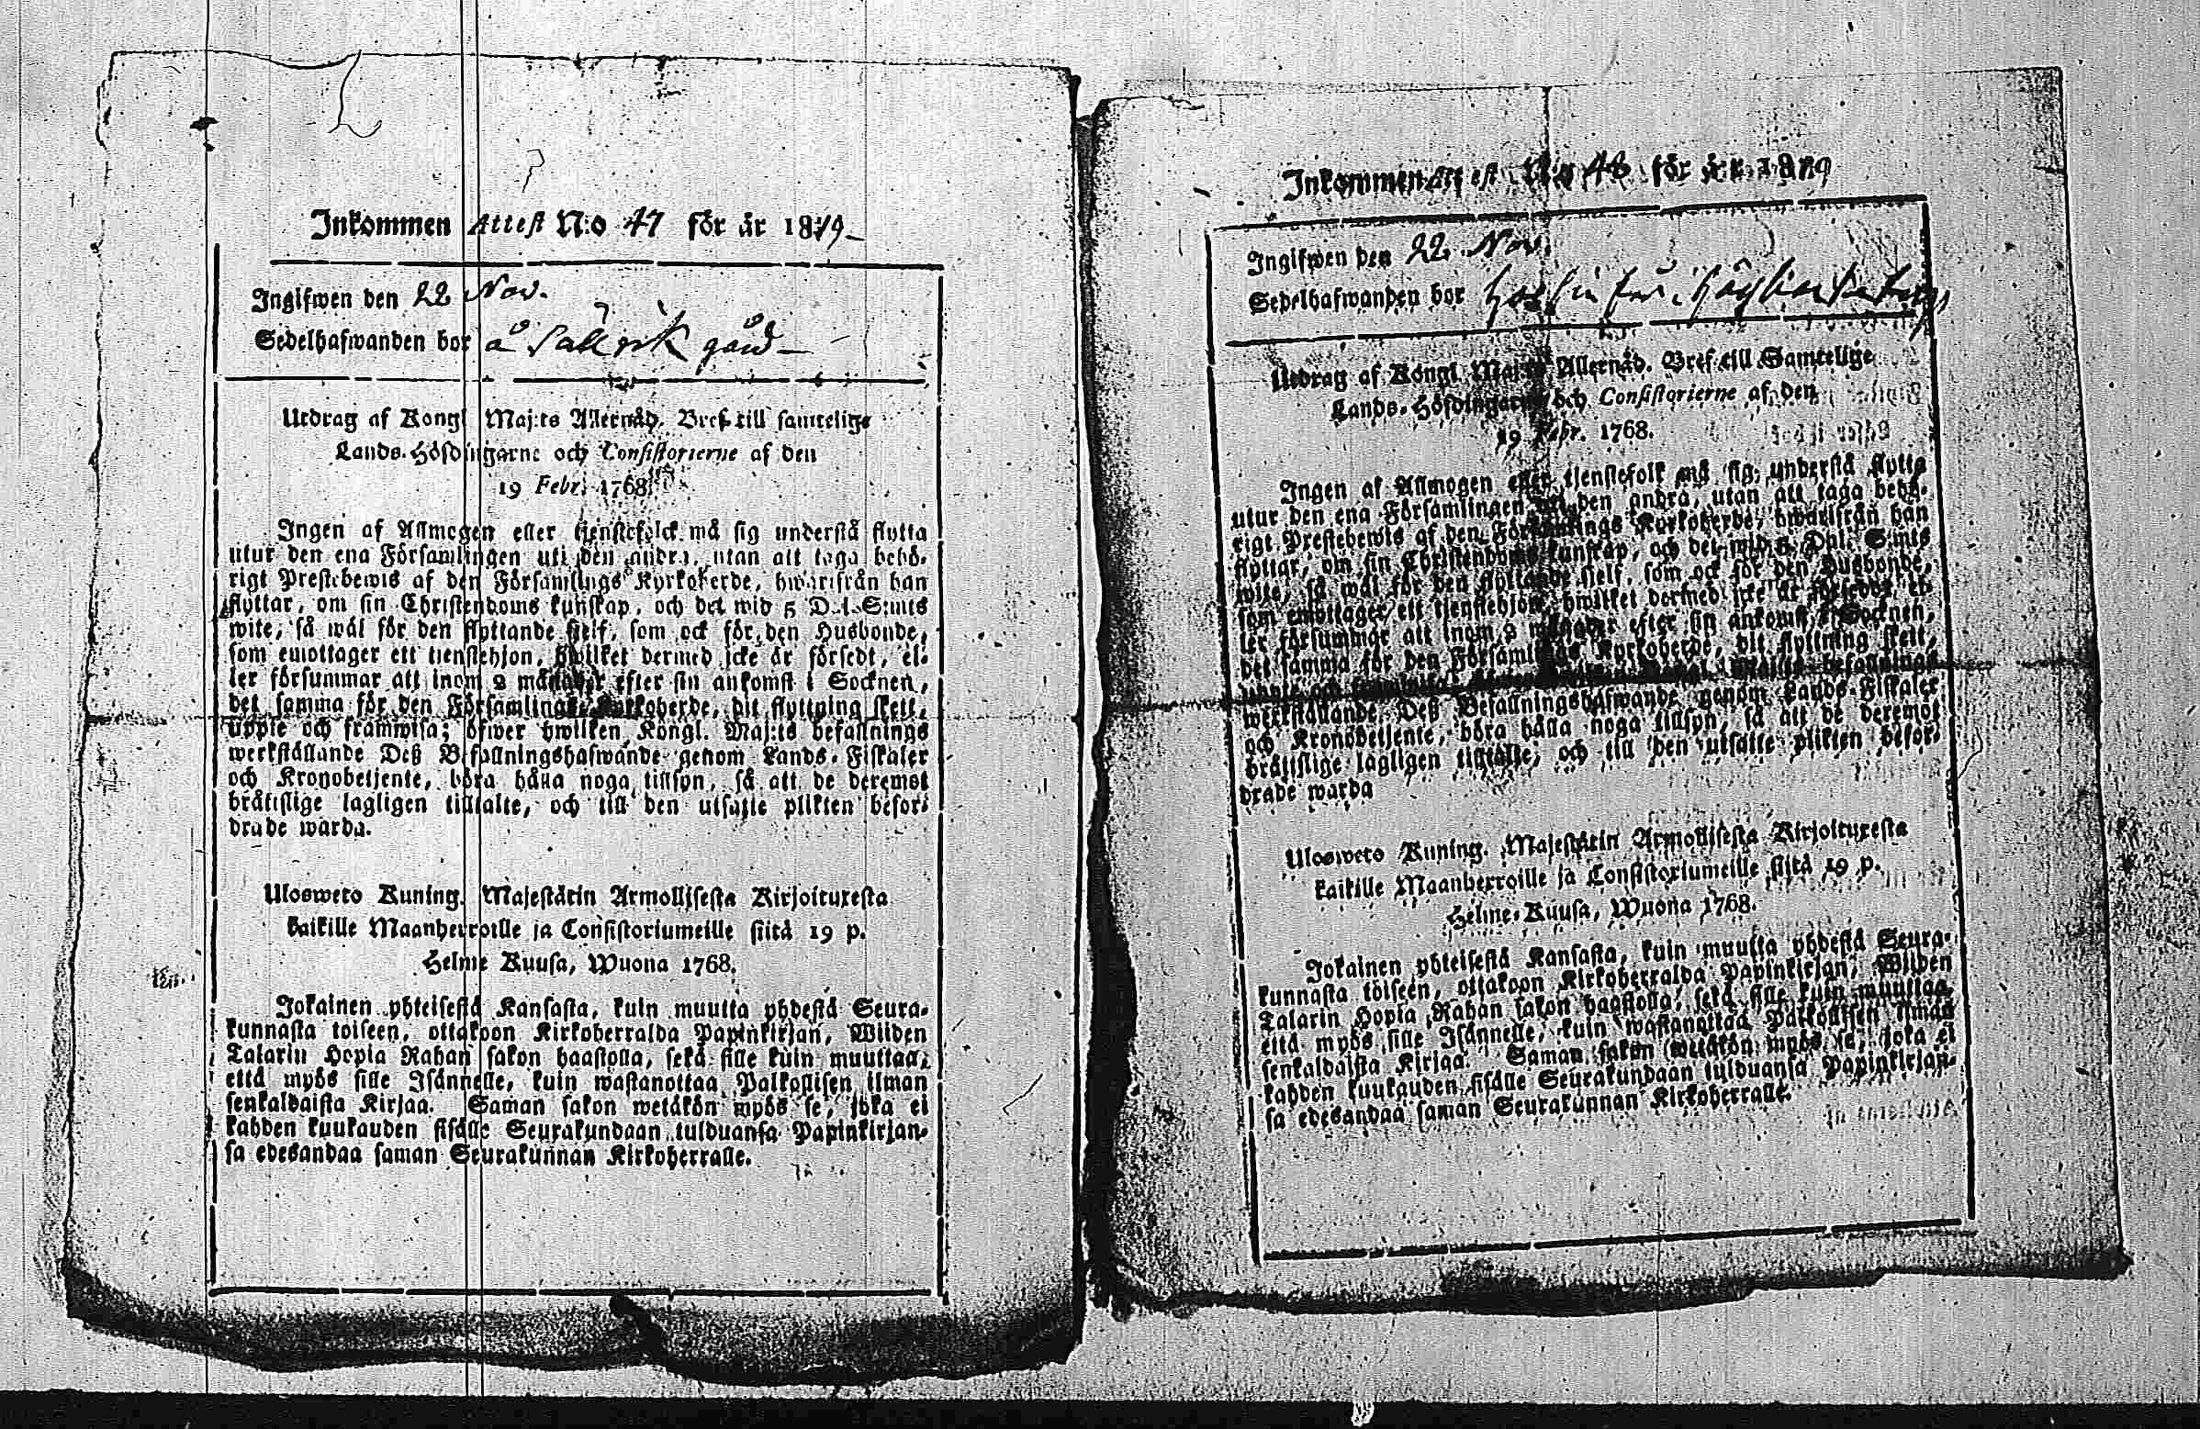 Inkommen Attest N:o 47 för år 1819
Ingifwen den 22 Nov.
Sedelhafwanden bor å gård
Utdrag af Kongl Maj:ts Allernåd. Bref till samtelige
Lands-Höfdingarne och Consistorierne af den
19 Febr. 1768.
Ingen af Allmogen eller tjenstefolck må sig understå flytta
utur den ena Församlingen uti den andra, utan att taga behö-
rigt Prestebewis af den Församlings Kyrkoherde, hwarifrån han
flyttar, om sin Christendoms kunskap, och det wid 5 D:l. S:mts
wite, så wäl för den flyttande sjelf, som ock för den Husbonde,
som emottager ett tienstehjon, hwilket dermed icke är försedt, el-
ler försummar att inom 2 månader efter sin ankomst i Socknen,
det samma för den Församlings Kyrkoherde, dit flyttning skett,
uppte och framwisa; öfwer hwilken Kongl. Maj:ts befallnings
werkställande Deß Befallningshafwande genom Lands-Fiskaler
och Kronobetjente, böra hålla noga tillsyn, så att de deremot
bråtislige lagligen tilltalte, och till den utsatte plikten befor-
drade warda.
Ulosweto Kuning. Majestätin Armollisesta Kirjoituxesta
kaikille Maanherroille ja Consistoriumeille siitä 19 p.
Helme Kuusa, Wuona 1768.
Jokainen yhteisestä Kansasta, kuin muutta yhdestä Seura-
kunnasta toiseen, ottakoon Kirkoherralda Papinkirjan, Wiiden
Talarin Hopia Rahan sakon haastolla, sekä sille kuin muuttaa,
että myös sille Isännelle, kuin wastanottaa Palkollisen ilman
senkaldaista Kirjaa. Saman sakon wetäkön myös se, joka ei
kahden kuukauden sisälle Seurakundaan tulduansa Papinkirjan-
sa edesandaa saman Seurakunnan Kirkoherralle.
Inkommen Attest N:o 48 för år 1819
Ingifwen den 22 Nov.
Sedelhafwanden bor
Utdrag af Kongl. Maj:ts Allernåd. Bref till Samtelige
Lands-Höfdingarne och Consistorierne af den
19 Febr. 1768.
Ingen af Allmogen eller tjenstefolk må sig understå flytta
utur den ena Församlingen uti den andra, utan att taga behö-
rigt Prestebewis af den Församlings Kyrkoherde, hwarifrån han
flyttar, om sin Christendoms kunskap, och det wid 5 Dal. S:mts
wite, så wäl för den flyttande sjelf, som ock för den Husbonde,
som emottager ett tjenstehjon, hwilket dermed icke är försedt, el-
ler försummar att inom 2 månader efter sin ankomst i Socknen,
det samma för den Församlings Kyrkoherde, dit flyttning skett,
Maj:ts befallnings
werkställande Deß Befallningshafwande genom Lands-Fiskaler
och Kronobetjente, böra hålla noga tillsyn, så att de deremot
bråtislige lagligen tilltalte, och till den utsatte plikten befor-
drade warda
Ulosweto Kuning. Majestätin Armollisesta Kirjoituxesta
kaikille Maanherroille ja Consistoriumeille siitä 19 p.
Helme-Kuusa, Wuona 1768.
Jokainen yhteisestä Kansasta, kuin muutta yhdestä Seura-
kunnasta töiseen, ottakoon Kirkoherralda Papinkirjan, Wiiden
Talarin Hopia Rahan sakon haastolla, sekä sille kuin muuttaa,
että myös sille Isännelle, kuin wastanottaa Palkollisen ilman
senkaldaista Kirjaa. Saman sakon wetäkön myös se, joka ei
kahden kuukauden sisälle Seurakundaan tulduansa Papinkirjan-
sa edesandaa saman Seurakunnan Kirkoherralle.